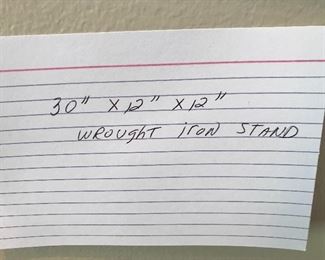 30" x 12" x 12"
WROUGHT iron STAND